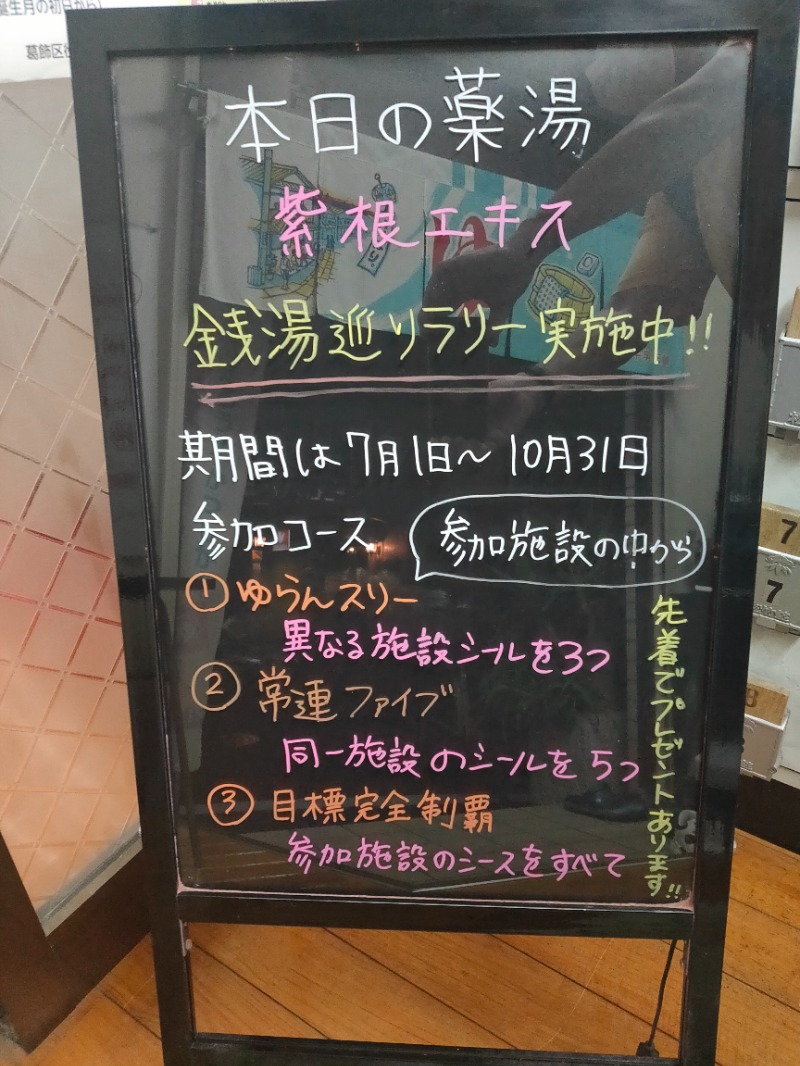 誕生月の初日から
葛飾区
本日の薬湯
紫根エキス
銭湯巡りラリー実施中!!
期間は7月1日〜10月31日
参加コース
参加施設の中から
①ゆらんスリー
異なる施設シールを3つ
②常連ファイブ
同一施設のシールを5つ
③目標完全制覇
参加施設のシースをすべて
先着でプレゼントあります!!
7
7
8